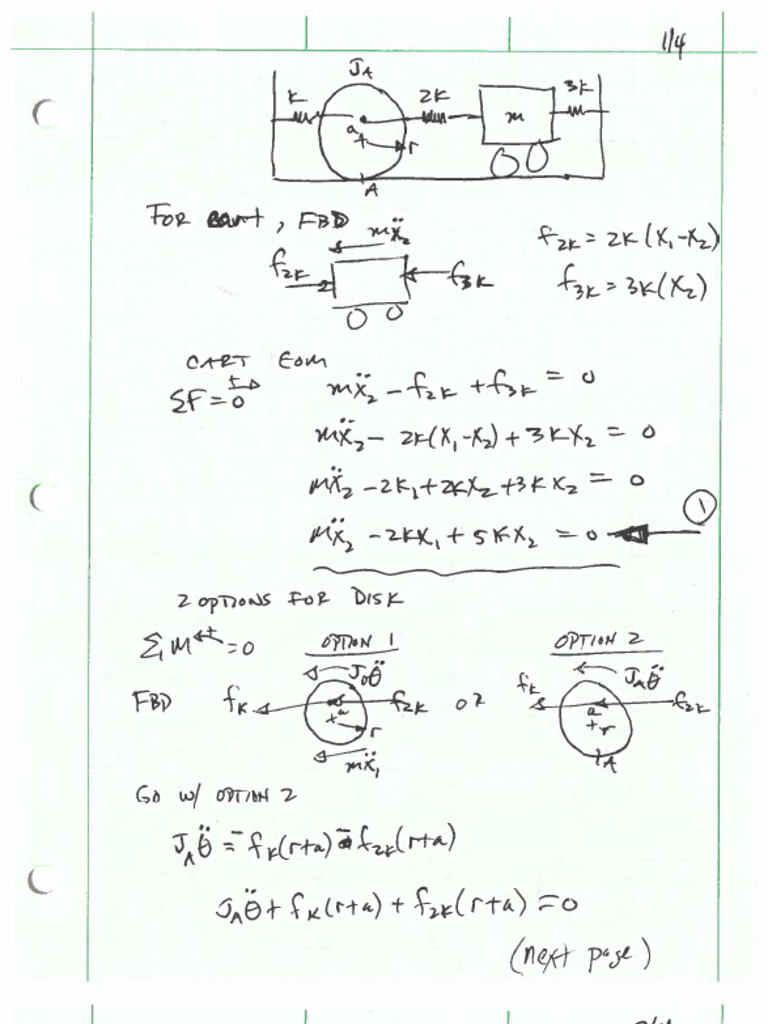 1/4
J_A
K 2K m 3K
a r
A
FOR cart, FBD
mẍ₂
f_2K f_3K
f_2K = 2K(X₁-X₂)
f_3K = 3K(X₂)
CART EOM
ΣF = 0 +
mẍ₂ - f_2K + f_3K = 0
mẍ₂ - 2K(X₁-X₂) + 3KX₂ = 0
mẍ₂ - 2K₁ + 2KX₂ + 3KX₂ = 0
mẍ₂ - 2KX₁ + 5KX₂ = 0 ①
2 OPTIONS FOR DISK
ΣM + = 0 OPTION 1 OPTION 2
J_0θ̈ J_Aθ̈
FBD f_K a f_2K or f_K a f_2K
r r
mẍ₁ A
GO W/ OPTION 2
J_Aθ̈ = -f_K(r+a) - f_2K(r+a)
J_Aθ̈ + f_K(r+a) + f_2K(r+a) = 0
(next page)